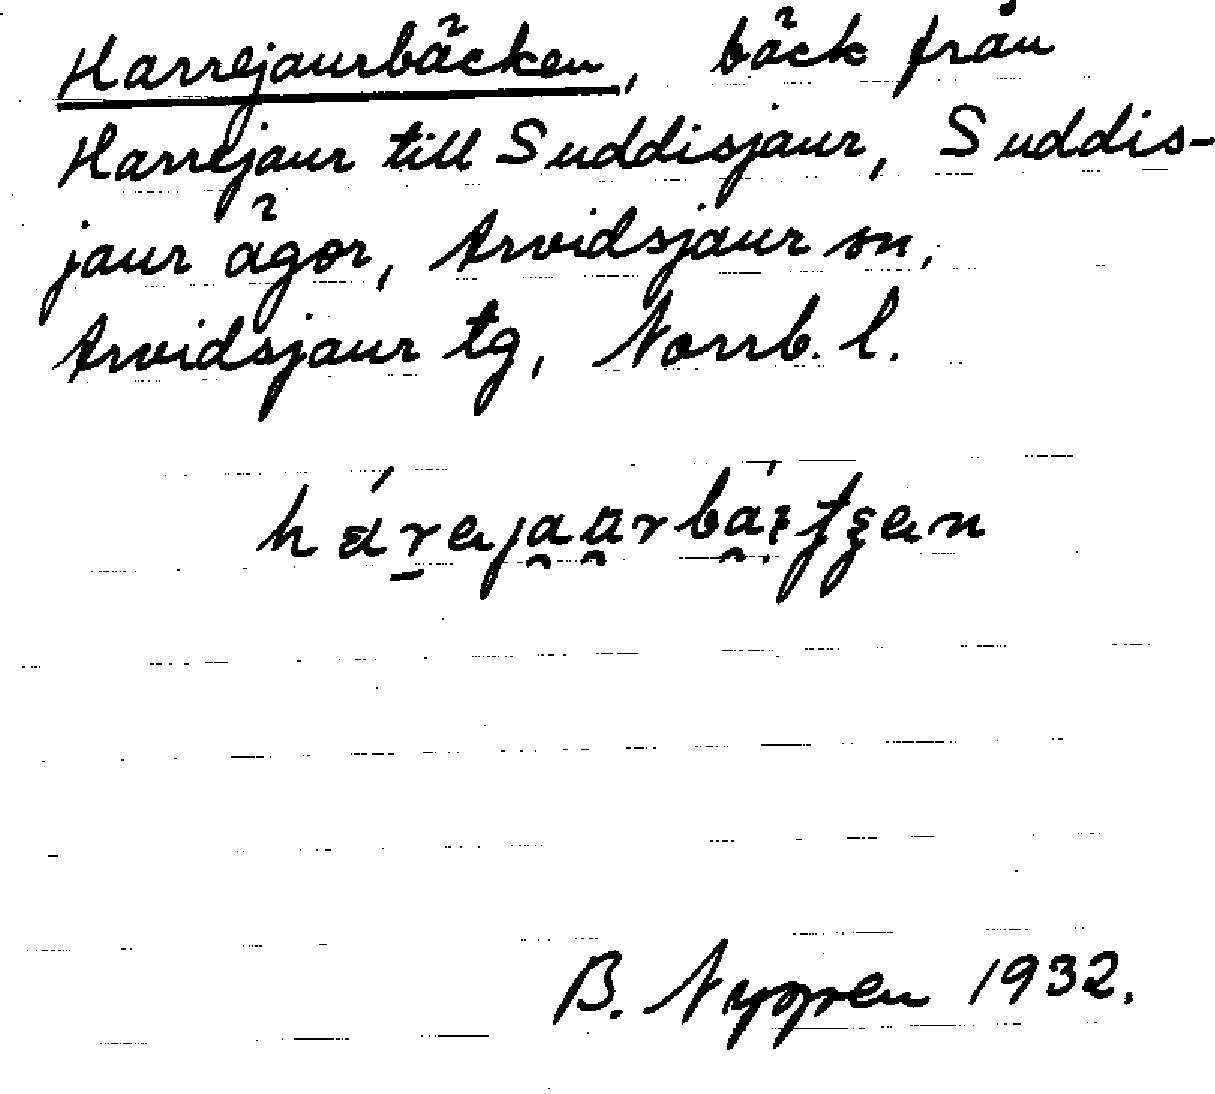 Harrejaurbäcken, bäck från
Harrejaur till Suddisjaur, Suddis-
jaur ägor, Arvidsjaur sn,
Arvidsjaur tg, Norrb. l.
B. Nyppen 1932.